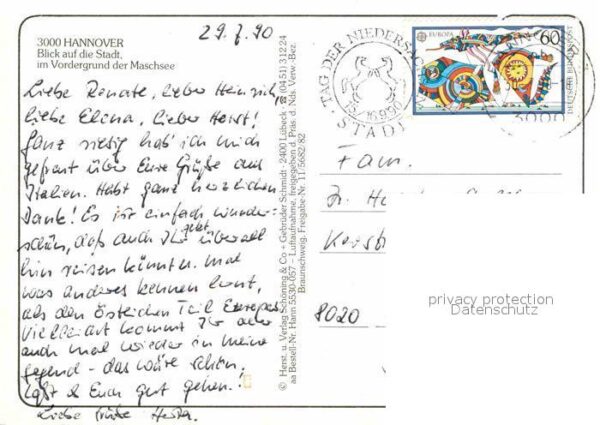 29.7.90
3000 HANNOVER
Blick auf die Stadt,
im Vordergrund der Maschsee
Liebe Renate, lieber Heinrich,
liebe Elena, lieber Horst!
Ganz riesig hab' ich mich
gefreut über Eure Grüße aus
Italien. Habt ganz herzlichen
Dank! Es ist einfach wunder-
schön, daß auch Ihr jetzt überall
hin reisen könnt u. mal
was anderes kennen lernt,
als den östlichen Teil Europas.
Vielleicht kommt Ihr aber
auch mal wieder in meine
Gegend - das wäre schön.
Laßt es Euch gut gehen!
Liebe Grüße
© Herst. u. Verlag Schöning & Co + Gebrüder Schmidt · 2400 Lübeck · ☎ (04 51) 3 12 24
aa Bestell-Nr. Hann 5530-057 – Luftaufnahme, freigegeben d. Präs. d. Nds. Verw.-Bez.
Braunschweig. Freigabe-Nr. 11/5682/82
TAG DER NIEDERSA
STADT
EUROPA
60
DEUTSCHE BUNDESPOST
3000
Fam.
8020
privacy protection
Datenschutz